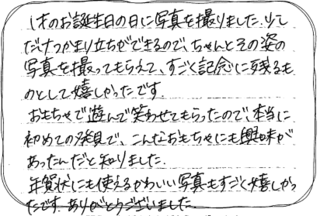 1才のお誕生日の日に写真を撮りました。少し
だけつかまり立ちができるので、ちゃんとその姿の
写真を撮ってもらえて、すごく記念に残るも
のとして嬉しかったです。
おもちゃで遊んで笑わせてもらったので、本当に
初めての発見で、こんなおもちゃにも興味が
あったんだと知りました。
年賀状にも使えるかわいい写真もすごく嬉しかっ
たです。ありがとうございました。